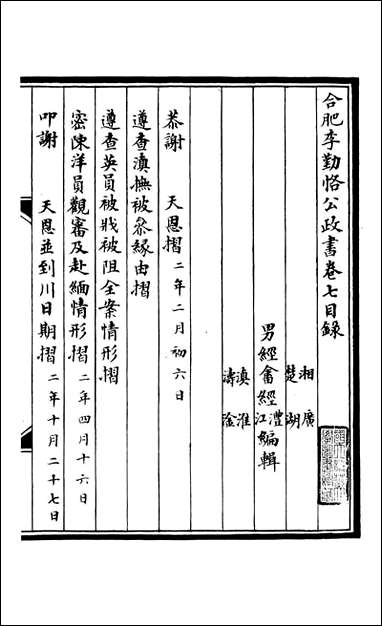 合肥李勤恪公政書卷七目錄
湘 廣
楚 湖
男經畬經澧江編輯
滇 淮
濤 淦
恭謝 天恩摺 二年二月初六日
遵查滇撫被叅緣由摺
遵查英員被戕被阻全案情形摺
密陳洋員觀審及赴緬情形摺 二年四月十六日
叩謝 天恩並到川日期摺 二年十月二十七日